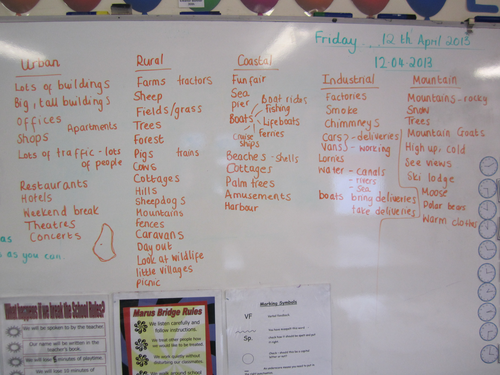 Friday 12th April 2013
12.04.2013
Urban
Lots of buildings
Big, tall buildings
Offices
Apartments
Shops
Lots of traffic - lots of people
Restaurants
Hotels
Weekend break
Theatres
Concerts
as you can
Rural
Farms tractors
Sheep
Fields/grass
Trees
Forest
Pigs trains
Cows
Cottages
Hills
Sheepdogs
Mountains
fences
Caravans
Day out
Look at wildlife
little villages
Picnic
Coastal
Funfair
Sea
pier
Boats
Boat rides
Fishing
Lifeboats
ferries
Cruise ships
Beaches - shells
Cottages
Palm trees
Amusements
Harbour
Industrial
Factories
Smoke
Chimneys
Cars - deliveries
Vans - working
Lorries
Water - canals
- rivers
- sea
boats bring deliveries
take deliveries
Mountain
Mountains - rocky
Snow
Trees
Mountain Goats
High up, cold
See views
Ski lodge
Moose
Polar bears
Warm clothes
What happens if we break the School Rules?
We will be spoken to by the teacher.
Our name will be written in the teacher's book.
We will lose 5 minutes of playtime.
We will lose 10 minutes of
Marus Bridge Rules
We listen carefully and follow instructions.
We treat other people how we would like to be treated.
We work quietly without disturbing our classmates.
We walk around school
Marking Symbols
VF
Sp.